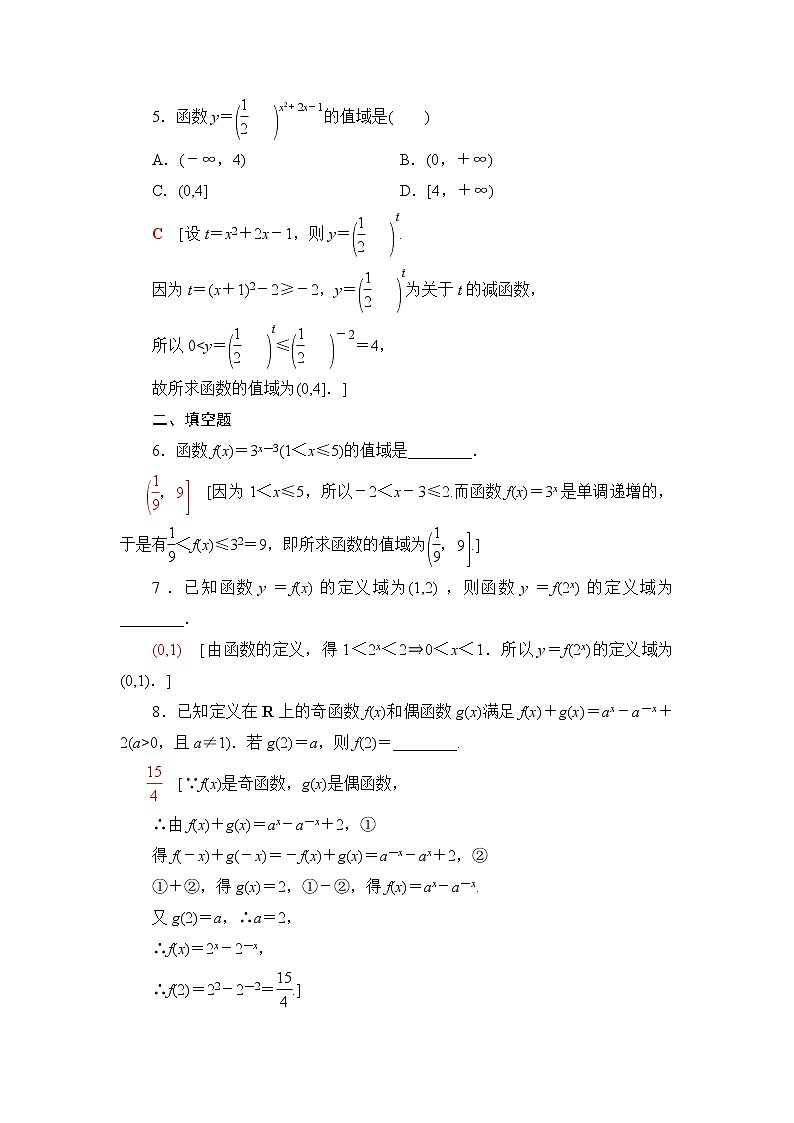 5．函数 y＝(1/2)^(x²＋2x－1)的值域是(　　)
A．(－∞，4)　　B．(0，＋∞)
C．(0,4]　　D．[4，＋∞)
C　[设 t＝x²＋2x－1，则 y＝(1/2)^t.
因为 t＝(x＋1)²－2≥－2，y＝(1/2)^t为关于 t 的减函数，
所以 0<y＝(1/2)^t≤(1/2)^(－2)＝4，
故所求函数的值域为(0,4]．]
二、填空题
6．函数 f(x)＝3^(x－3)(1＜x≤5)的值域是________．
(1/9，9]　[因为 1＜x≤5，所以－2＜x－3≤2.而函数 f(x)＝3^x 是单调递增的，
于是有1/9＜f(x)≤3²＝9，即所求函数的值域为(1/9，9].]
7．已知函数 y＝f(x) 的定义域为(1,2)，则函数 y＝f(2^x) 的定义域为
________．
(0,1)　[由函数的定义，得 1＜2^x＜2⇒0＜x＜1．所以 y＝f(2^x)的定义域为
(0,1)．]
8．已知定义在 R 上的奇函数 f(x)和偶函数 g(x)满足 f(x)＋g(x)＝a^x－a^(－x)＋
2(a>0，且 a≠1)．若 g(2)＝a，则 f(2)＝________.
15/4　[∵f(x)是奇函数，g(x)是偶函数，
∴由 f(x)＋g(x)＝a^x－a^(－x)＋2，①
得 f(－x)＋g(－x)＝－f(x)＋g(x)＝a^(－x)－a^x＋2，②
①＋②，得 g(x)＝2，①－②，得 f(x)＝a^x－a^(－x).
又 g(2)＝a，∴a＝2，
∴f(x)＝2^x－2^(－x)，
∴f(2)＝2²－2^(－2)＝15/4.]